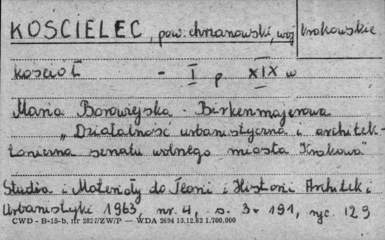 KOŚCIELEC, pow. chrzanowski, woj krakowskie
kościół - I p XIX w
Maria Borowiejska - Birkenmajerowa
„Działalność urbanistyczna i architek-
toniczna senatu wolnego miasta Krakowa"
Studia i Materiały do Teorii i Historii Architek i
Urbanistyki 1963, nr. 4, s. 3-191, ryc. 129
CWD - B-15-b, nr 282/ZW/P — WDA 2694 13.12.62 1.700.000